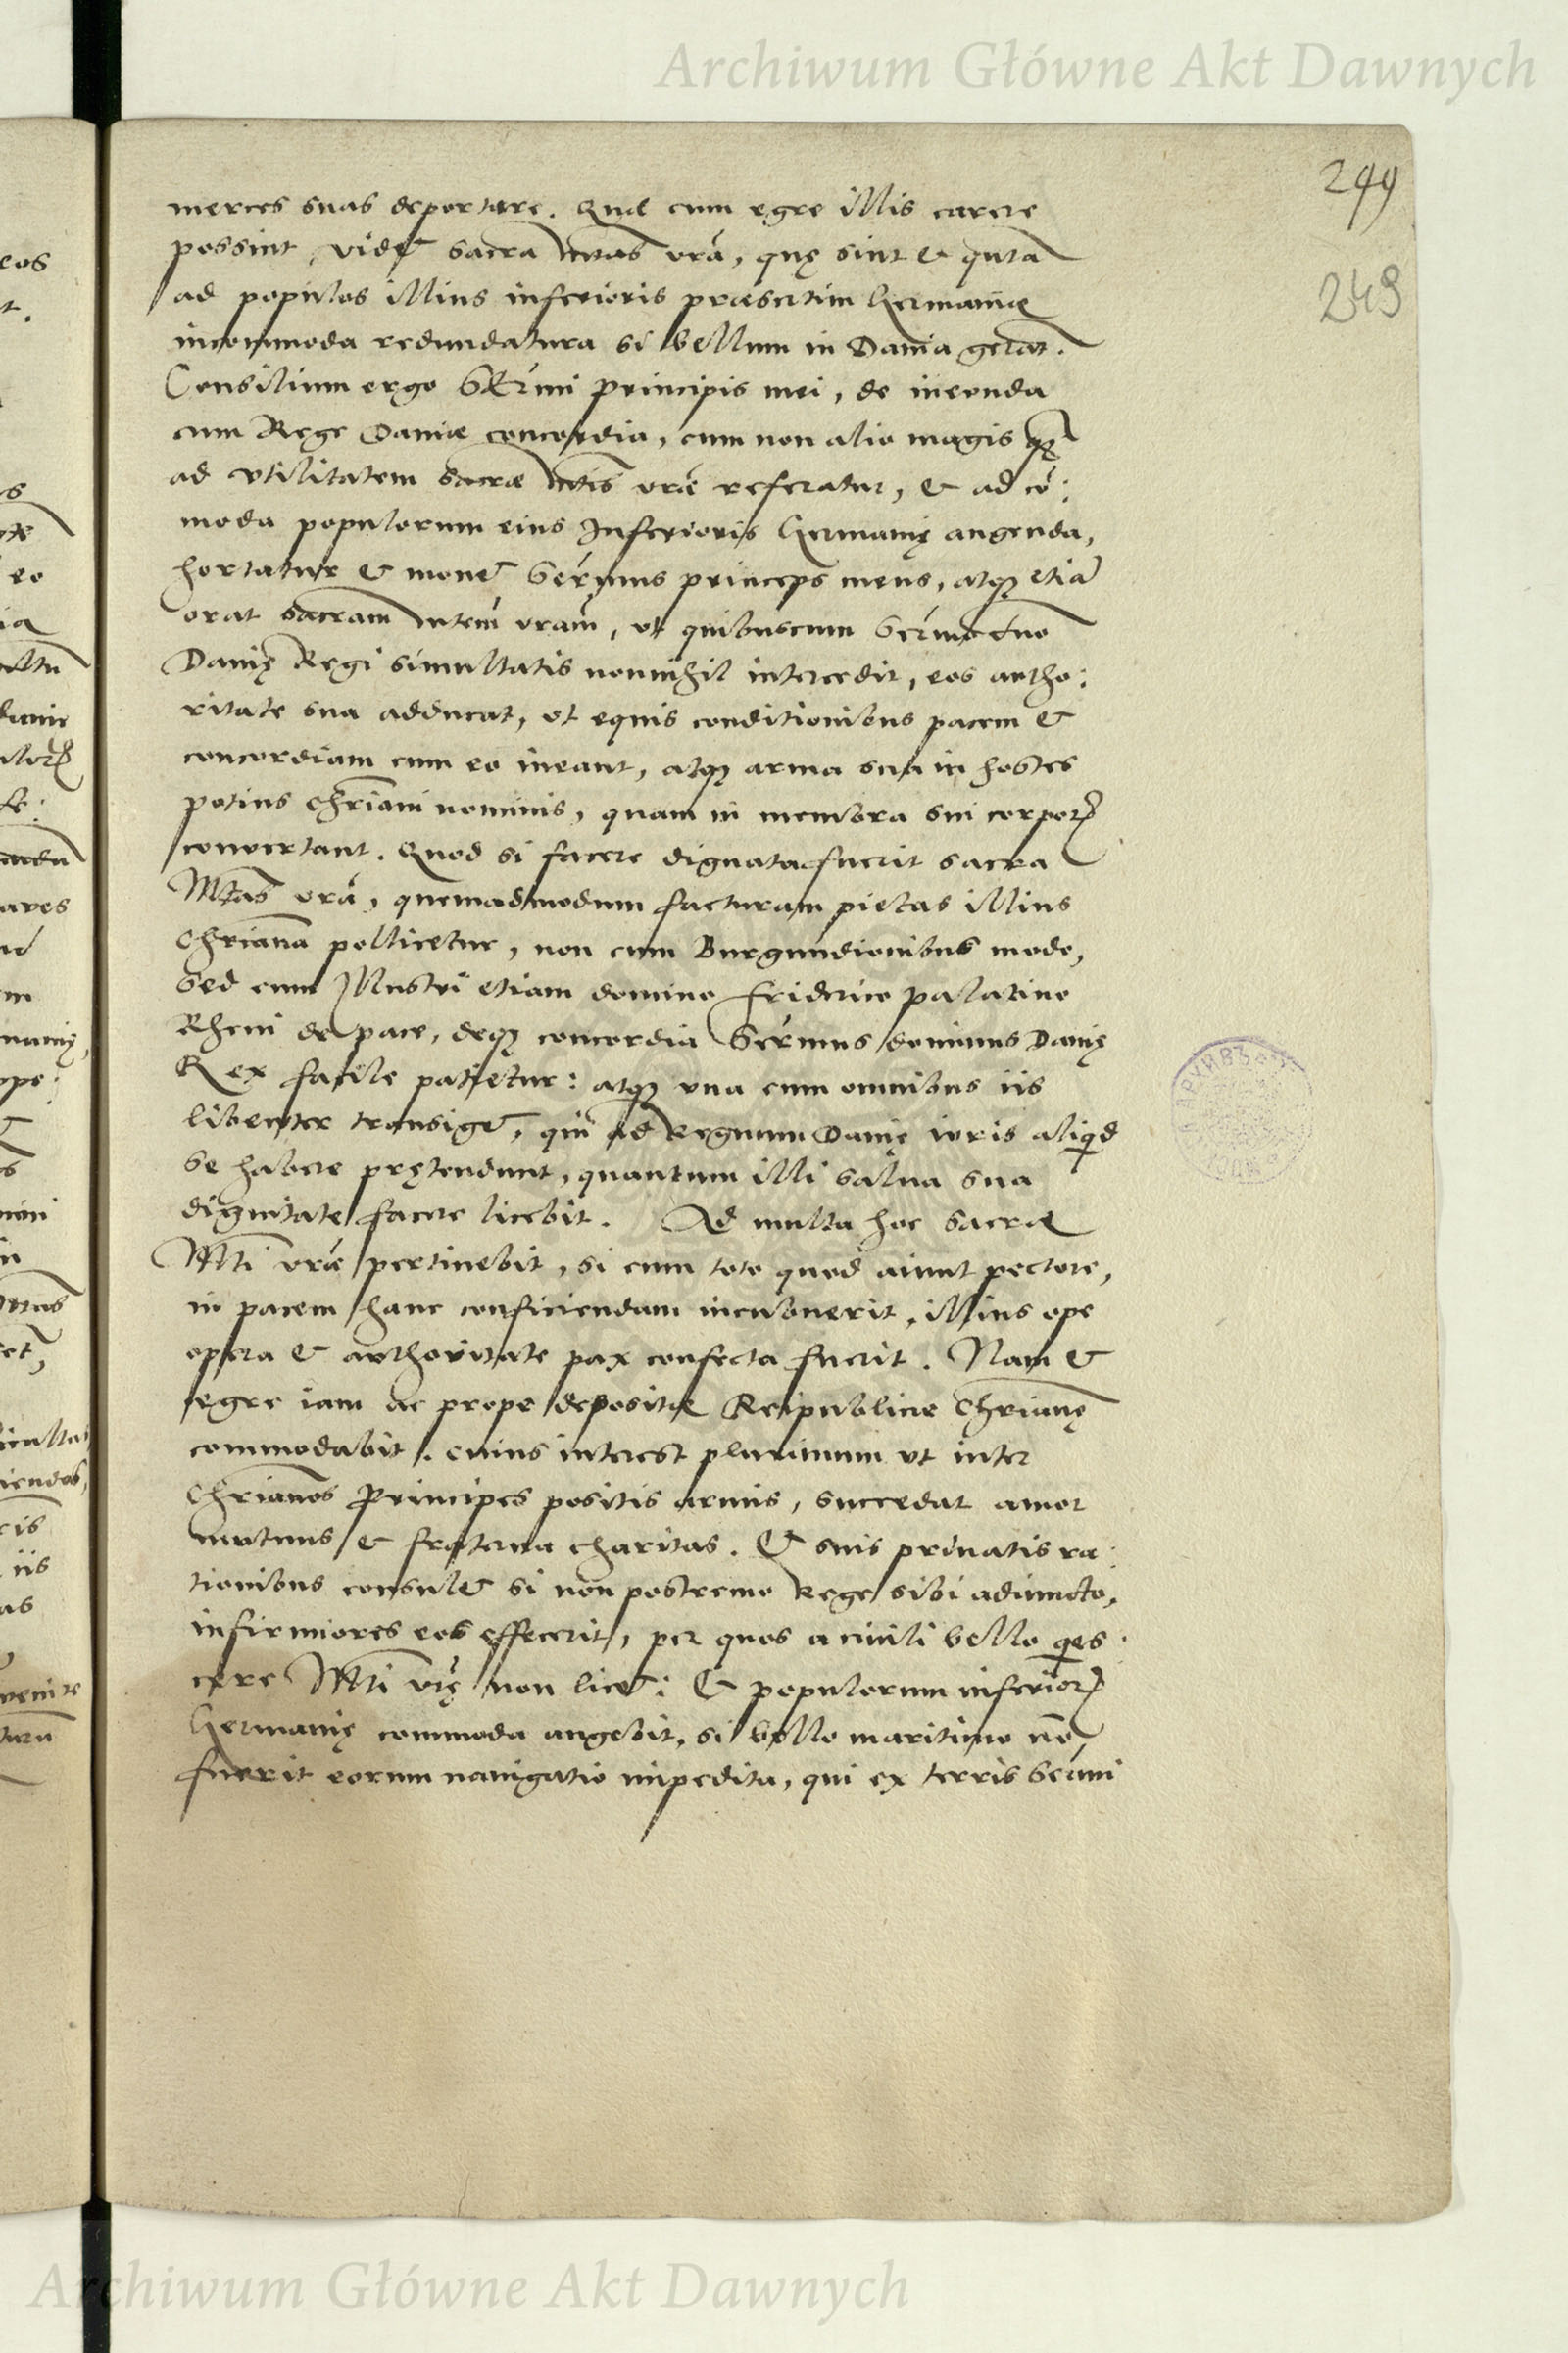 Archiwum Główne Akt Dawnych
299
249
merces suas deportare. Quae cum egre illis carere
possint, videt sacra Mtas vra, quę sint & quta
ad populos illius inferioris praesertim Germaniae
incommoda redundatura si bellum in Dania gerat.
Consilium ergo Sermi principis mei, de ineunda
cum Rege Daniae concordia, cum non alio magis qz
ad vtilitatem sacrae Mtis vrae referatur, & ad co:
moda populorum eius Inferioris Germanię augenda,
hortatur & monet Sermus princeps meus, atqz etia
orat sacram Mtem vram, vt quibuscum Sermo duo
Danię Regi simultatis nonnihil intercedit, eos autho:
ritate sua adducat, vt equis conditionibus pacem &
concordiam cum eo ineant, atqz arma sua in hostes
potius Chriani nominis, quam in membra sui corporis
convertant. Quod si facere dignata fuerit sacra
Mtas vra, quemadmodum facturam pietas illius
Chriana pollicetur, non cum Burgundionibus modo,
Sed cum Illustri etiam domino Friderico palatino
Rheni de pace, deqz concordia Sermus dominus Danię
Rex facile patietur: atqz vna cum omnibus iis
libenter transiget, qui ad Regnum Danię iuris aliqd
se habere prętendunt, quantum illi salua sua
dignitate facere licebit. Ad multa hoc sacrae
Mti vrae pertinebit, si cum toto quod aiunt pectore,
in pacem hanc conficiendam incubuerit, illius ope
opera & authoritate pax confecta fuerit. Nam &
egre iam ac prope depositae Reipublicae Chrianę
commodabit, cuius interest plurimum vt inter
Chrianos Principes positis armis, succedat amor
mutuus & fraterna charitas. Et suis priuatis ra:
tionibus consulet si non postremo Rege sibi adiuncto,
infirmiores eos effecerit, per quos a ciuili bello qies:
cere Mti vrę non licet: Et populorum inferioris
Germanię commoda augebit, si bello maritimo no
fuerit eorum nauigatio impedita, qui ex terris Sermi
Archiwum Główne Akt Dawnych